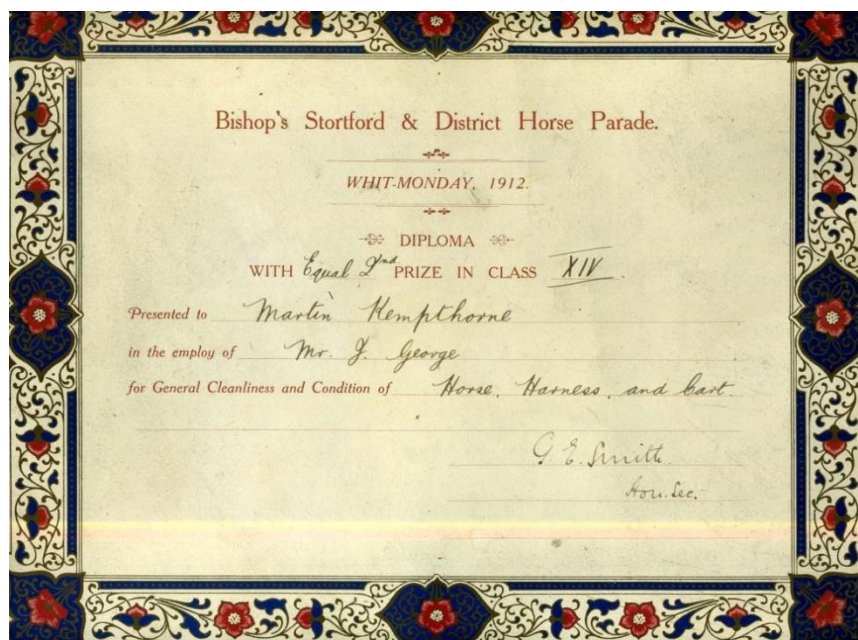 Bishop's Stortford & District Horse Parade.
WHIT-MONDAY, 1912.
DIPLOMA
WITH Equal 2nd PRIZE IN CLASS XIV.
Presented to Martin Kempthorne
in the employ of Mr. J. George
for General Cleanliness and Condition of Horse, Harness, and Cart.
G. E. Smith.
Hon. Sec.